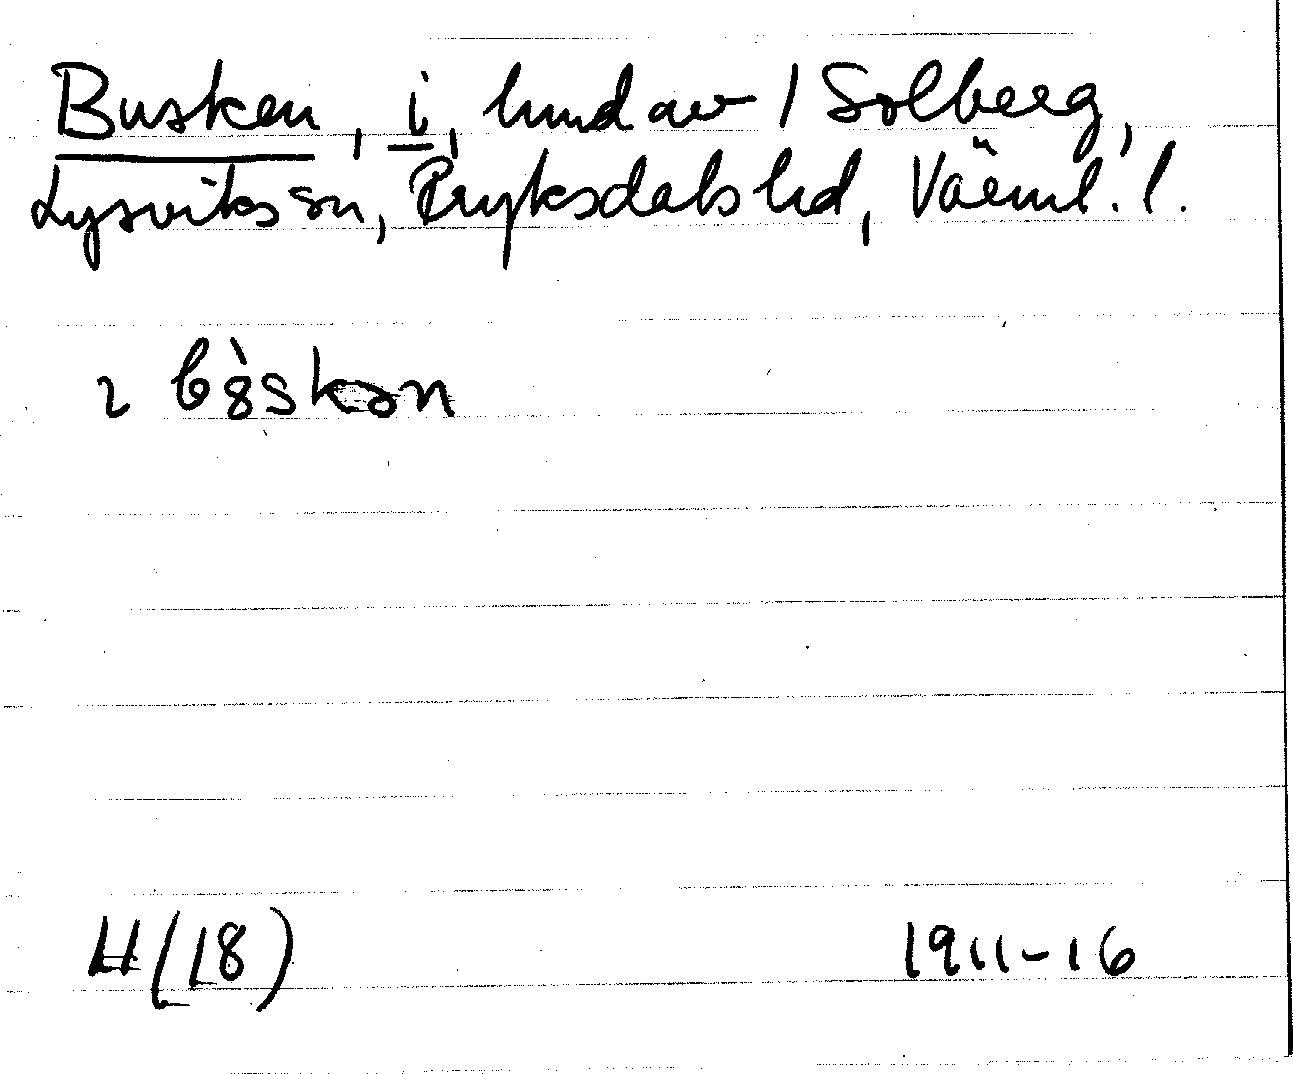 Busken, i, hmd av / Solberg,
Lysviks sn, Fryksdals hd, Värml. l.
ɩ b8̀skən
H (18)
1911-16